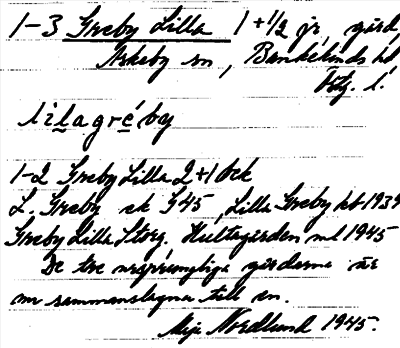 1-3 Greby Lilla 1 + 1/2 jr, gård,
Askeby sn, Bankekinds hd
Ötg. l.
lilagréby
1-2 Greby Lilla 2+1 bek
L. Greby ek G45, Lilla Greby kb 1939
Greby Lilla Storg. Hultagården ml 1945
De tre ursprungliga gårdarna är
nu sammanslagna till en.
Maja Nordlund 1945.